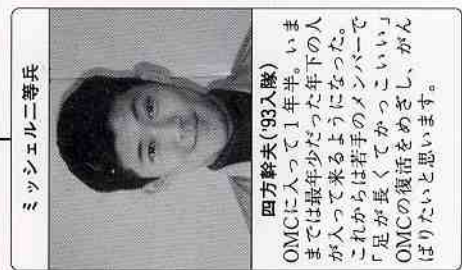 ミッシェル二等兵
四方幹夫('93入隊)
OMCに入って1年半。いま
までは最年少だった年下の人
が入って来るようになった。
これからは若手のメンバーで
「足が長くてかっこいい」
OMCの復活をめざし、がん
ばりたいと思います。